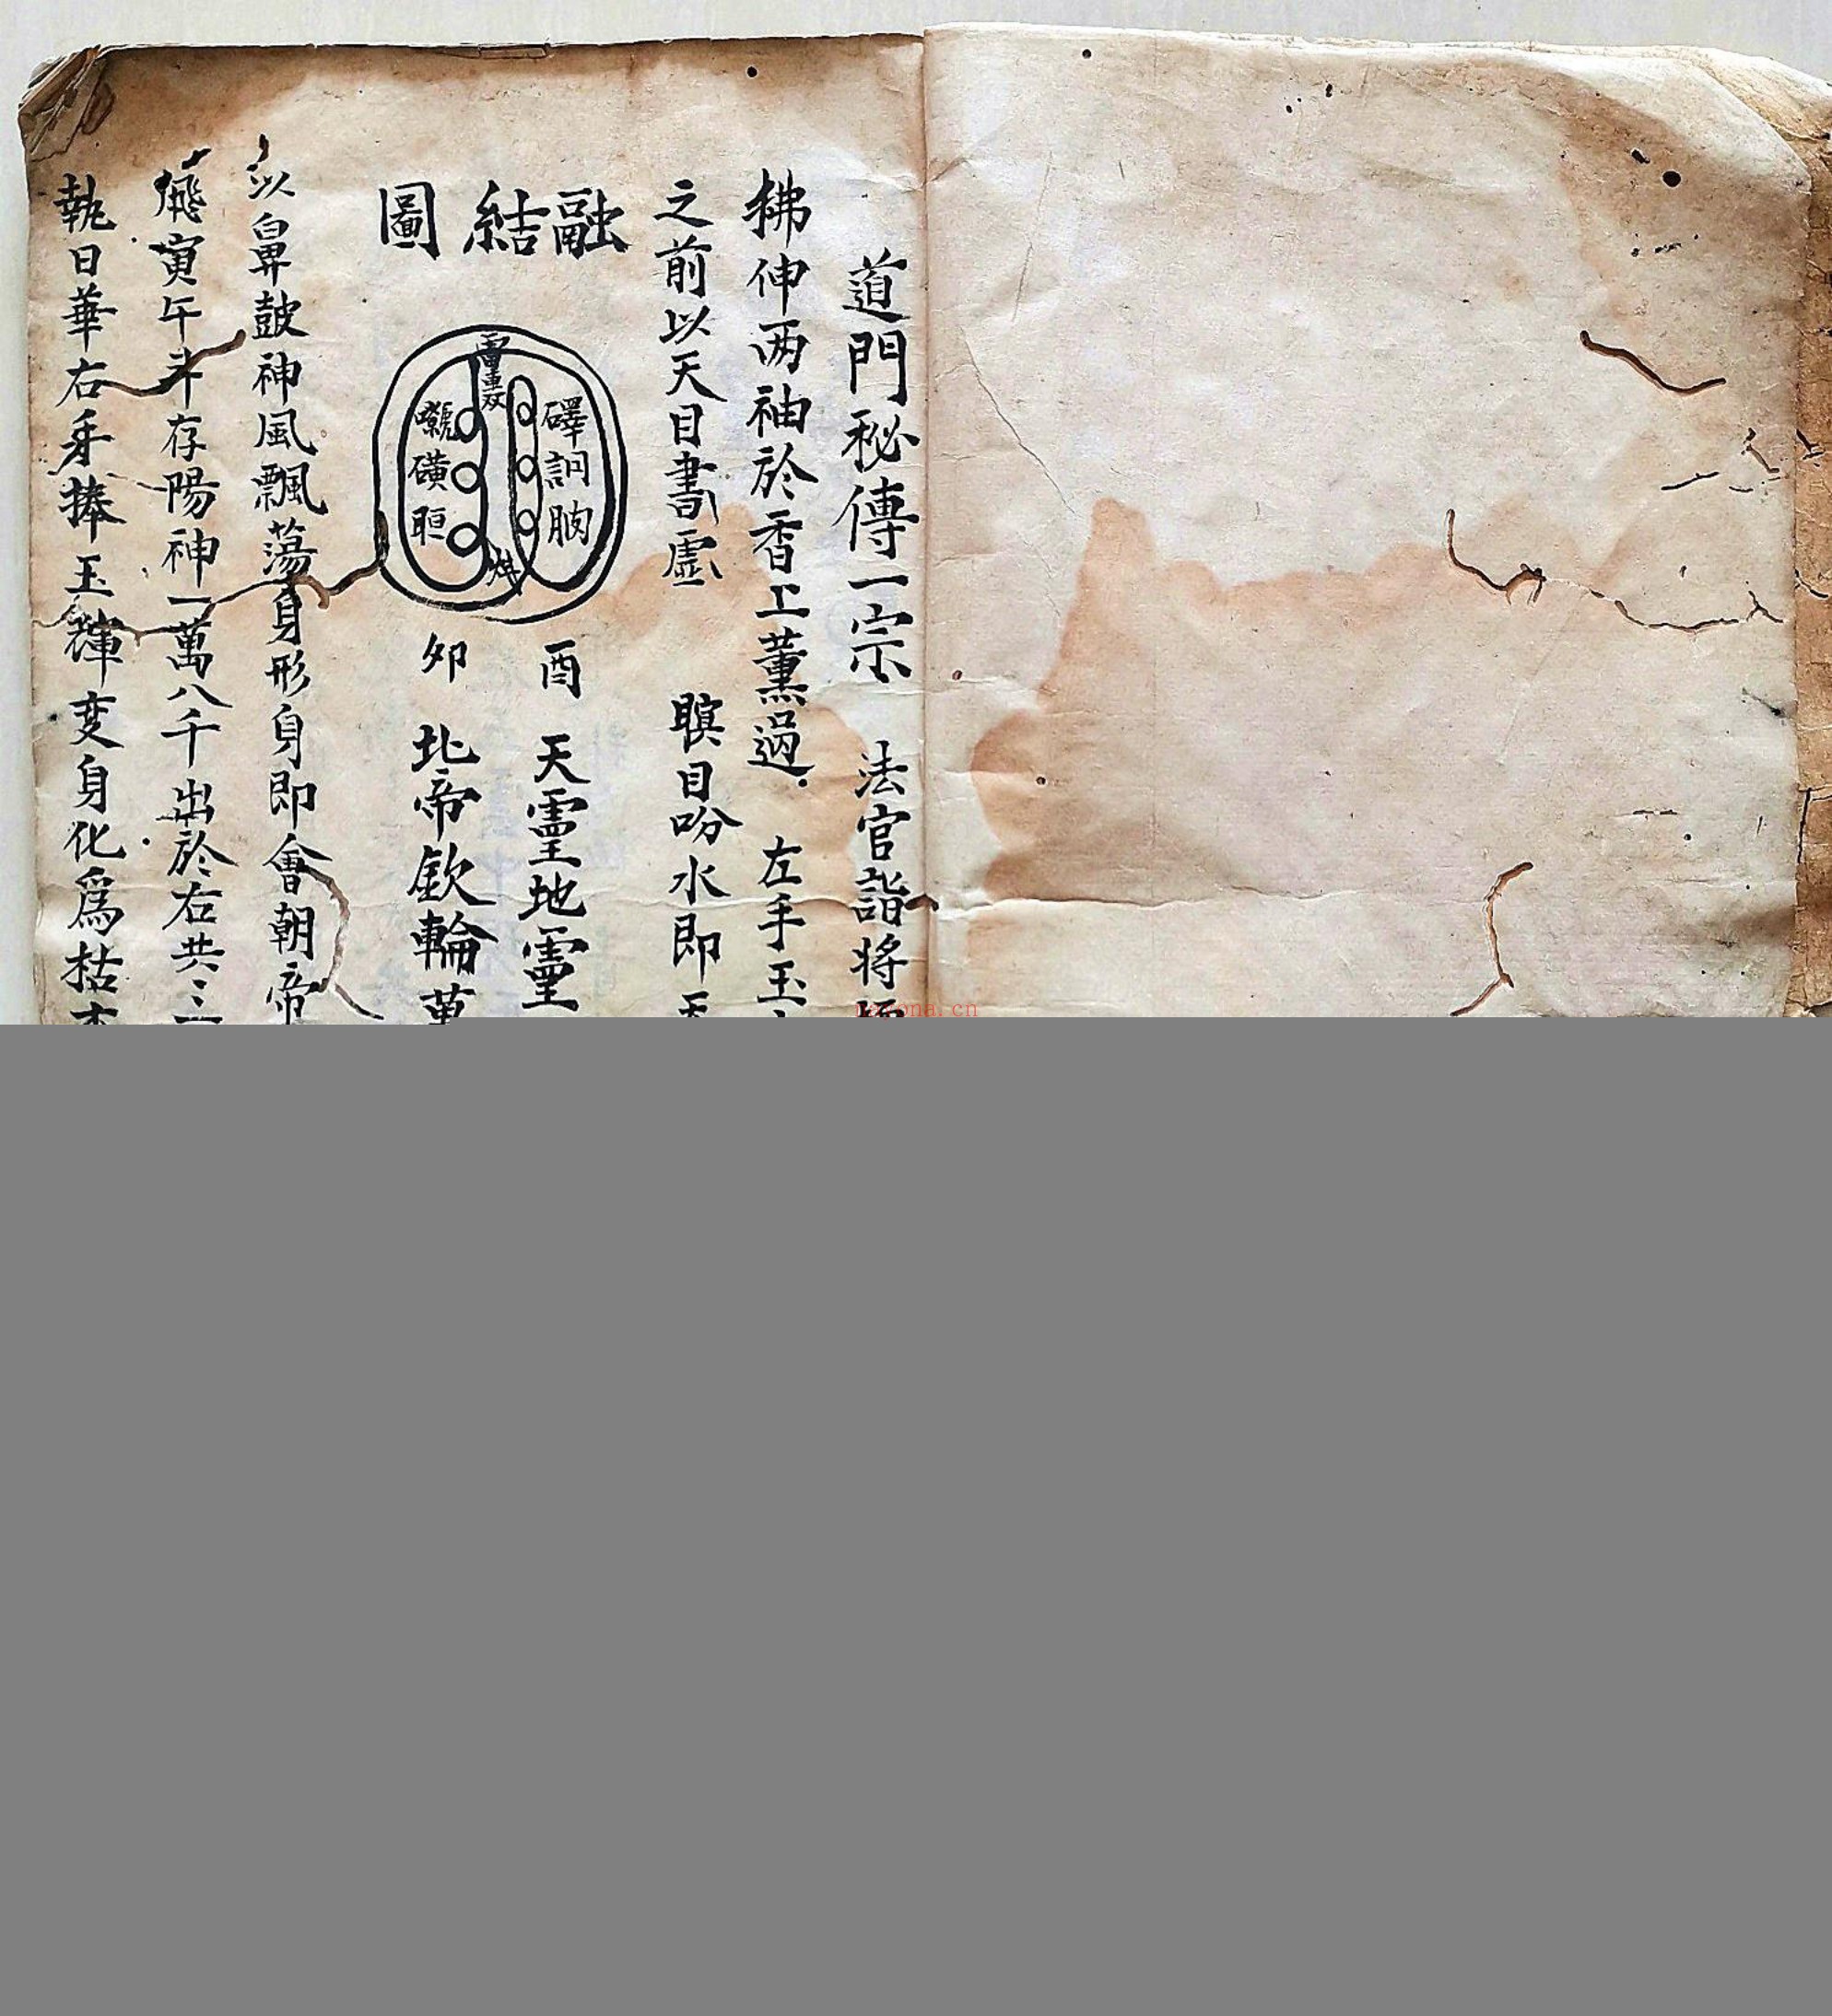 道門秘傳一宗 法官詣將
拂伸两袖於香上薰過 左手玉
之前以天目書虛 瞑目吩水即
融結圖
礔訶䐉
磺䀂
酉 天靈地靈
卯 北帝欽輪萬
以鼻皷神風飄蕩身形身即會朝帝
寅午 存陽神一萬八千出於右共三
執日華右手捧玉輝变身化爲枯